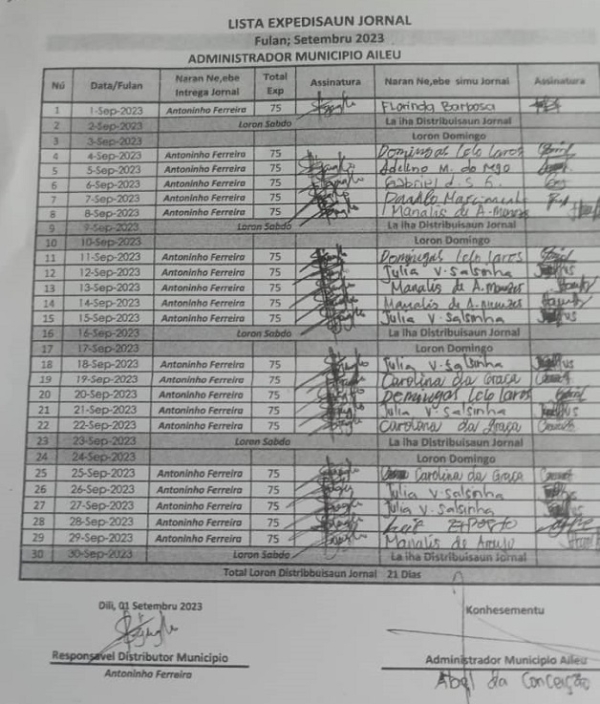 LISTA EXPEDISAUN JORNAL
Fulan; Setembru 2023
ADMINISTRADOR MUNICIPIO AILEU
Nú Data/Fulan Naran Ne,ebe Intrega Jornal Total Exp Assinatura Naran Ne,ebe simu Jornal Assinatura
1 1-Sep-2023 Antoninho Ferreira 75 Florinda Barbosa
2 2-Sep-2023 Loron Sabdo La iha Distribuisaun Jornal
3 3-Sep-2023 Loron Domingo
4 4-Sep-2023 Antoninho Ferreira 75 Domingas Lelo Lares
5 5-Sep-2023 Antoninho Ferreira 75 Adelino M. do rego
6 6-Sep-2023 Antoninho Ferreira 75 Gabriel d. S.
7 7-Sep-2023 Antoninho Ferreira 75
8 8-Sep-2023 Antoninho Ferreira 75 Manalis de A.
9 9-Sep-2023 Loron Sabdo La iha Distribuisaun Jornal
10 10-Sep-2023 Loron Domingo
11 11-Sep-2023 Antoninho Ferreira 75 Domingas Lelo Lares
12 12-Sep-2023 Antoninho Ferreira 75 Julia V. Salsinha
13 13-Sep-2023 Antoninho Ferreira 75 Manalis de A.
14 14-Sep-2023 Antoninho Ferreira 75 Manalis de A.
15 15-Sep-2023 Antoninho Ferreira 75 Julia V. Salsinha
16 16-Sep-2023 Loron Sabdo La iha Distribuisaun Jornal
17 17-Sep-2023 Loron Domingo
18 18-Sep-2023 Antoninho Ferreira 75 Julia V. Salsinha
19 19-Sep-2023 Antoninho Ferreira 75 Carolina da Graça
20 20-Sep-2023 Antoninho Ferreira 75 Domingas Lelo Lares
21 21-Sep-2023 Antoninho Ferreira 75 Julia V. Salsinha
22 22-Sep-2023 Antoninho Ferreira 75 Carolina da Graça
23 23-Sep-2023 Loron Sabdo La iha Distribuisaun Jornal
24 24-Sep-2023 Loron Domingo
25 25-Sep-2023 Antoninho Ferreira 75 Carolina da Graça
26 26-Sep-2023 Antoninho Ferreira 75 Julia V. Salsinha
27 27-Sep-2023 Antoninho Ferreira 75 Julia V. Salsinha
28 28-Sep-2023 Antoninho Ferreira 75
29 29-Sep-2023 Antoninho Ferreira 75 Manalis de Araujo
30 30-Sep-2023 Loron Sabdo La iha Distribuisaun Jornal
Total Loron Distribbuisaun Jornal 21 Dias
Dili, 01 Setembru 2023
Konhesementu
Responsavel Distributor Municipio
Antoninho Ferreira
Administrador Municipio Aileu
Abel da Conceição